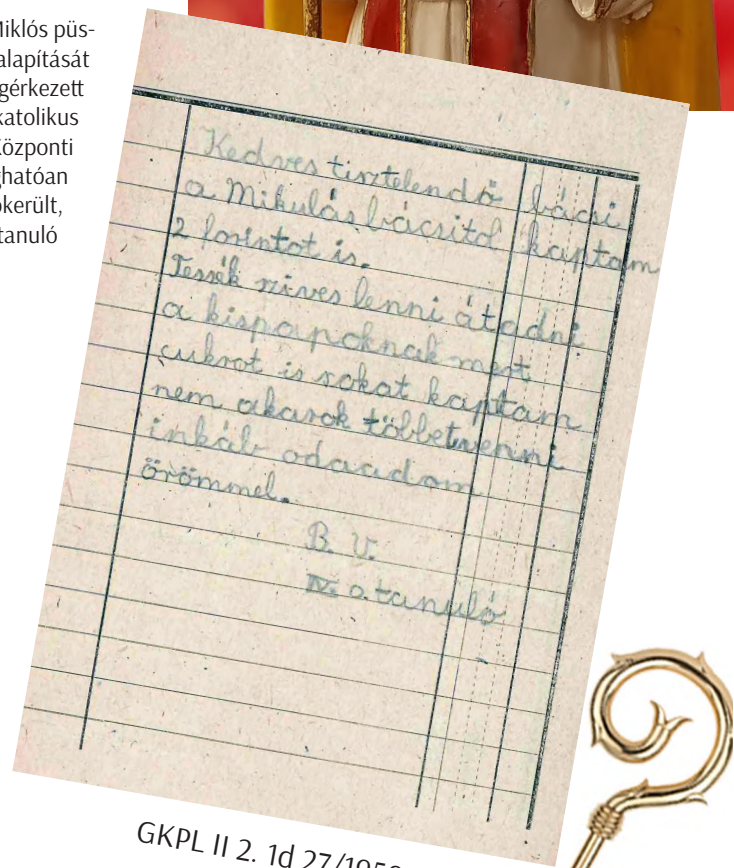 Miklós püs-
alapítását
gérkezett
katolikus
Központi
ghatóan
okerült,
tanuló
Kedves tisztelendő bácsi
a Mikulás bácsitol kaptam
2 forintot is.
Tessék szives lenni átadni
a kispapoknak mert
cukrot is sokat kaptam
nem akarok többet venni
inkáb odaadom
örömmel.
B. V.
IV. o. tanuló
GKPL II 2. 1d 27/195